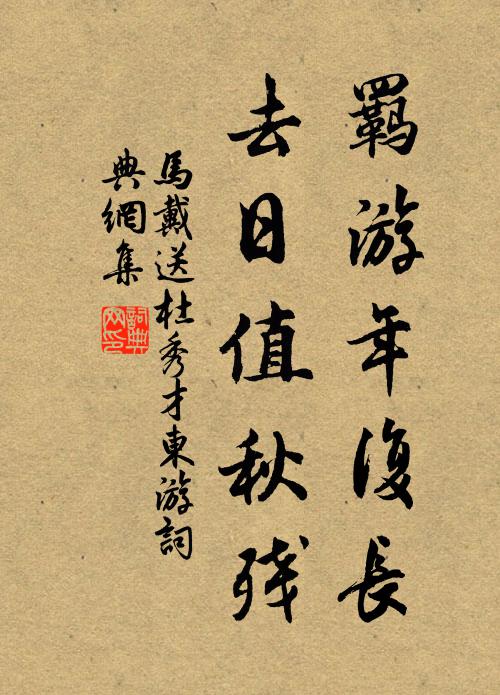 羈游年復長
去日值秋殘
馬戴送杜秀才東游詞
典網集
詞典
网印